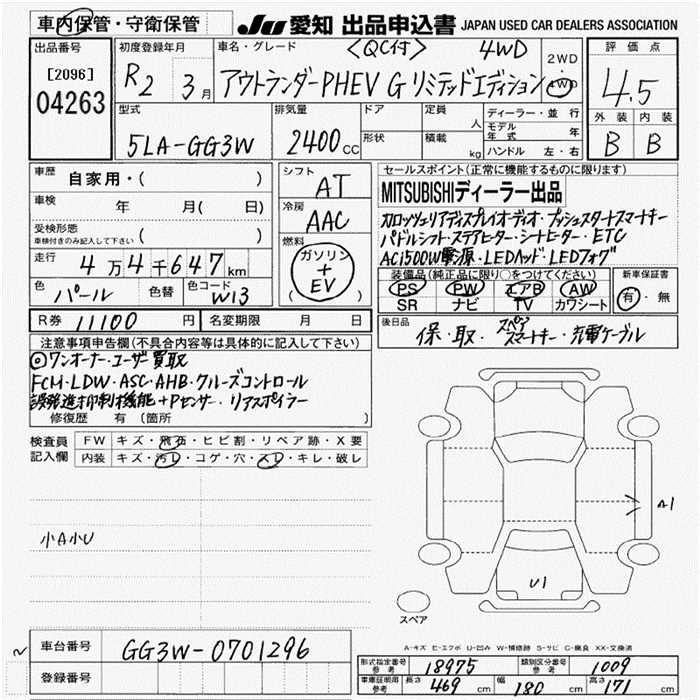 車内保管・守衛保管
JU 愛知 出品申込書 JAPAN USED CAR DEALERS ASSOCIATION
出品番号
[2096]
04263
初度登録年月
R2 3月
車名・グレード
<QC付> 4WD
アウトランダーPHEV G リミテッドエディション
2WD
・
4WD
評価点
4.5
外装 内装
B B
型式
5LA-GG3W
排気量
2400cc
ドア
形状
定員 人
積載 kg
ディーラー・並行
モデル年式 年
ハンドル 左・右
車歴 自家用・( )
車検 年 月( 日)
受検形態
車検付きのみ記入して下さい ( )
走行 4万4千647km
色 パール 色替 色コード W13
シフト AT
冷房 AAC
燃料
(ガソリン
+
EV)
セールスポイント(正常に機能するものに限ります)
MITSUBISHIディーラー出品
カロッツェリアディスプレイオーディオ・プッシュスタートスマートキー
パドルシフト・ステアヒーター・シートヒーター・ETC
AC1500W電源・LEDヘッド・LEDフォグ
装備品(純正品に限り○をつけてください)
PS PW エアB AW
SR ナビ TV カワシート
新車保証書
有・無
R券 11100円 名変期限 月 日
後日品
保・取・スペアスマートキー・充電ケーブル
注意事項申告欄(不具合内容等は具体的に記入して下さい)
◎ワンオーナー・ユーザー買取
FCM・LDW・ASC・AHB・クルーズコントロール
誤発進抑制機能+Pセンサー・リアスポイラー
修復歴 有(箇所 )
検査員記入欄
FW キズ・飛石・ヒビ割・リペア跡・X要
内装 キズ・汚レ・コゲ・穴・スレ・キレ・破レ
小A小U
A1
U1
スペア
A-キズ E-エクボ U-凹み W-補修跡 S-サビ C-腐食 XX-交換済
車台番号 GG3W-0701296
登録番号
形式指定番号 参考 18975 類別区分番号 参考 1009
車庫証明用 参考 長さ 469cm 幅 180cm 高さ 171cm